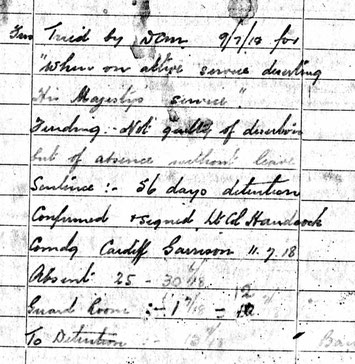 Tried by DCM 9/7/18 for
"When on active service deserting
His Majestys service".
Finding :- Not guilty of desertion
but of absence without leave
Sentence :- 56 days detention
Confirmed & signed Lt Col Handcock
Comdg Cardiff Garrison 11.7.18
Absent 25 - 30/6/18
Guard Room :- 1/7/18 - 12
To Detention :- 13/7/18